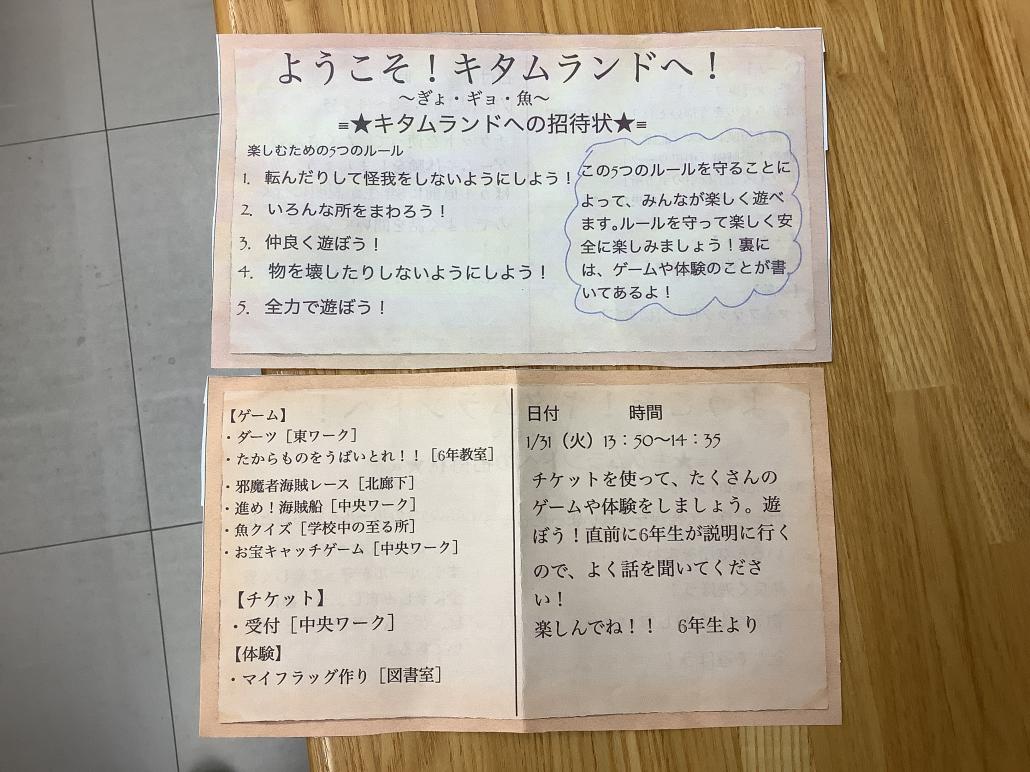 ようこそ！キタムランドへ！
〜ぎょ・ギョ・魚〜
≡★キタムランドへの招待状★≡
楽しむための5つのルール
1. 転んだりして怪我をしないようにしよう！
2. いろんな所をまわろう！
3. 仲良く遊ぼう！
4. 物を壊したりしないようにしよう！
5. 全力で遊ぼう！
この5つのルールを守ることに
よって、みんなが楽しく遊べ
ます。ルールを守って楽しく安
全に楽しみましょう！裏に
は、ゲームや体験のことが書
いてあるよ！
【ゲーム】
・ダーツ［東ワーク］
・たからものをうばいとれ！！［6年教室］
・邪魔者海賊レース［北廊下］
・進め！海賊船［中央ワーク］
・魚クイズ［学校中の至る所］
・お宝キャッチゲーム［中央ワーク］
【チケット】
・受付［中央ワーク］
【体験】
・マイフラッグ作り［図書室］
日付 時間
1/31（火）13：50〜14：35
チケットを使って、たくさんの
ゲームや体験をしましょう。遊
ぼう！直前に6年生が説明に行く
ので、よく話を聞いてくださ
い！
楽しんでね！！ 6年生より